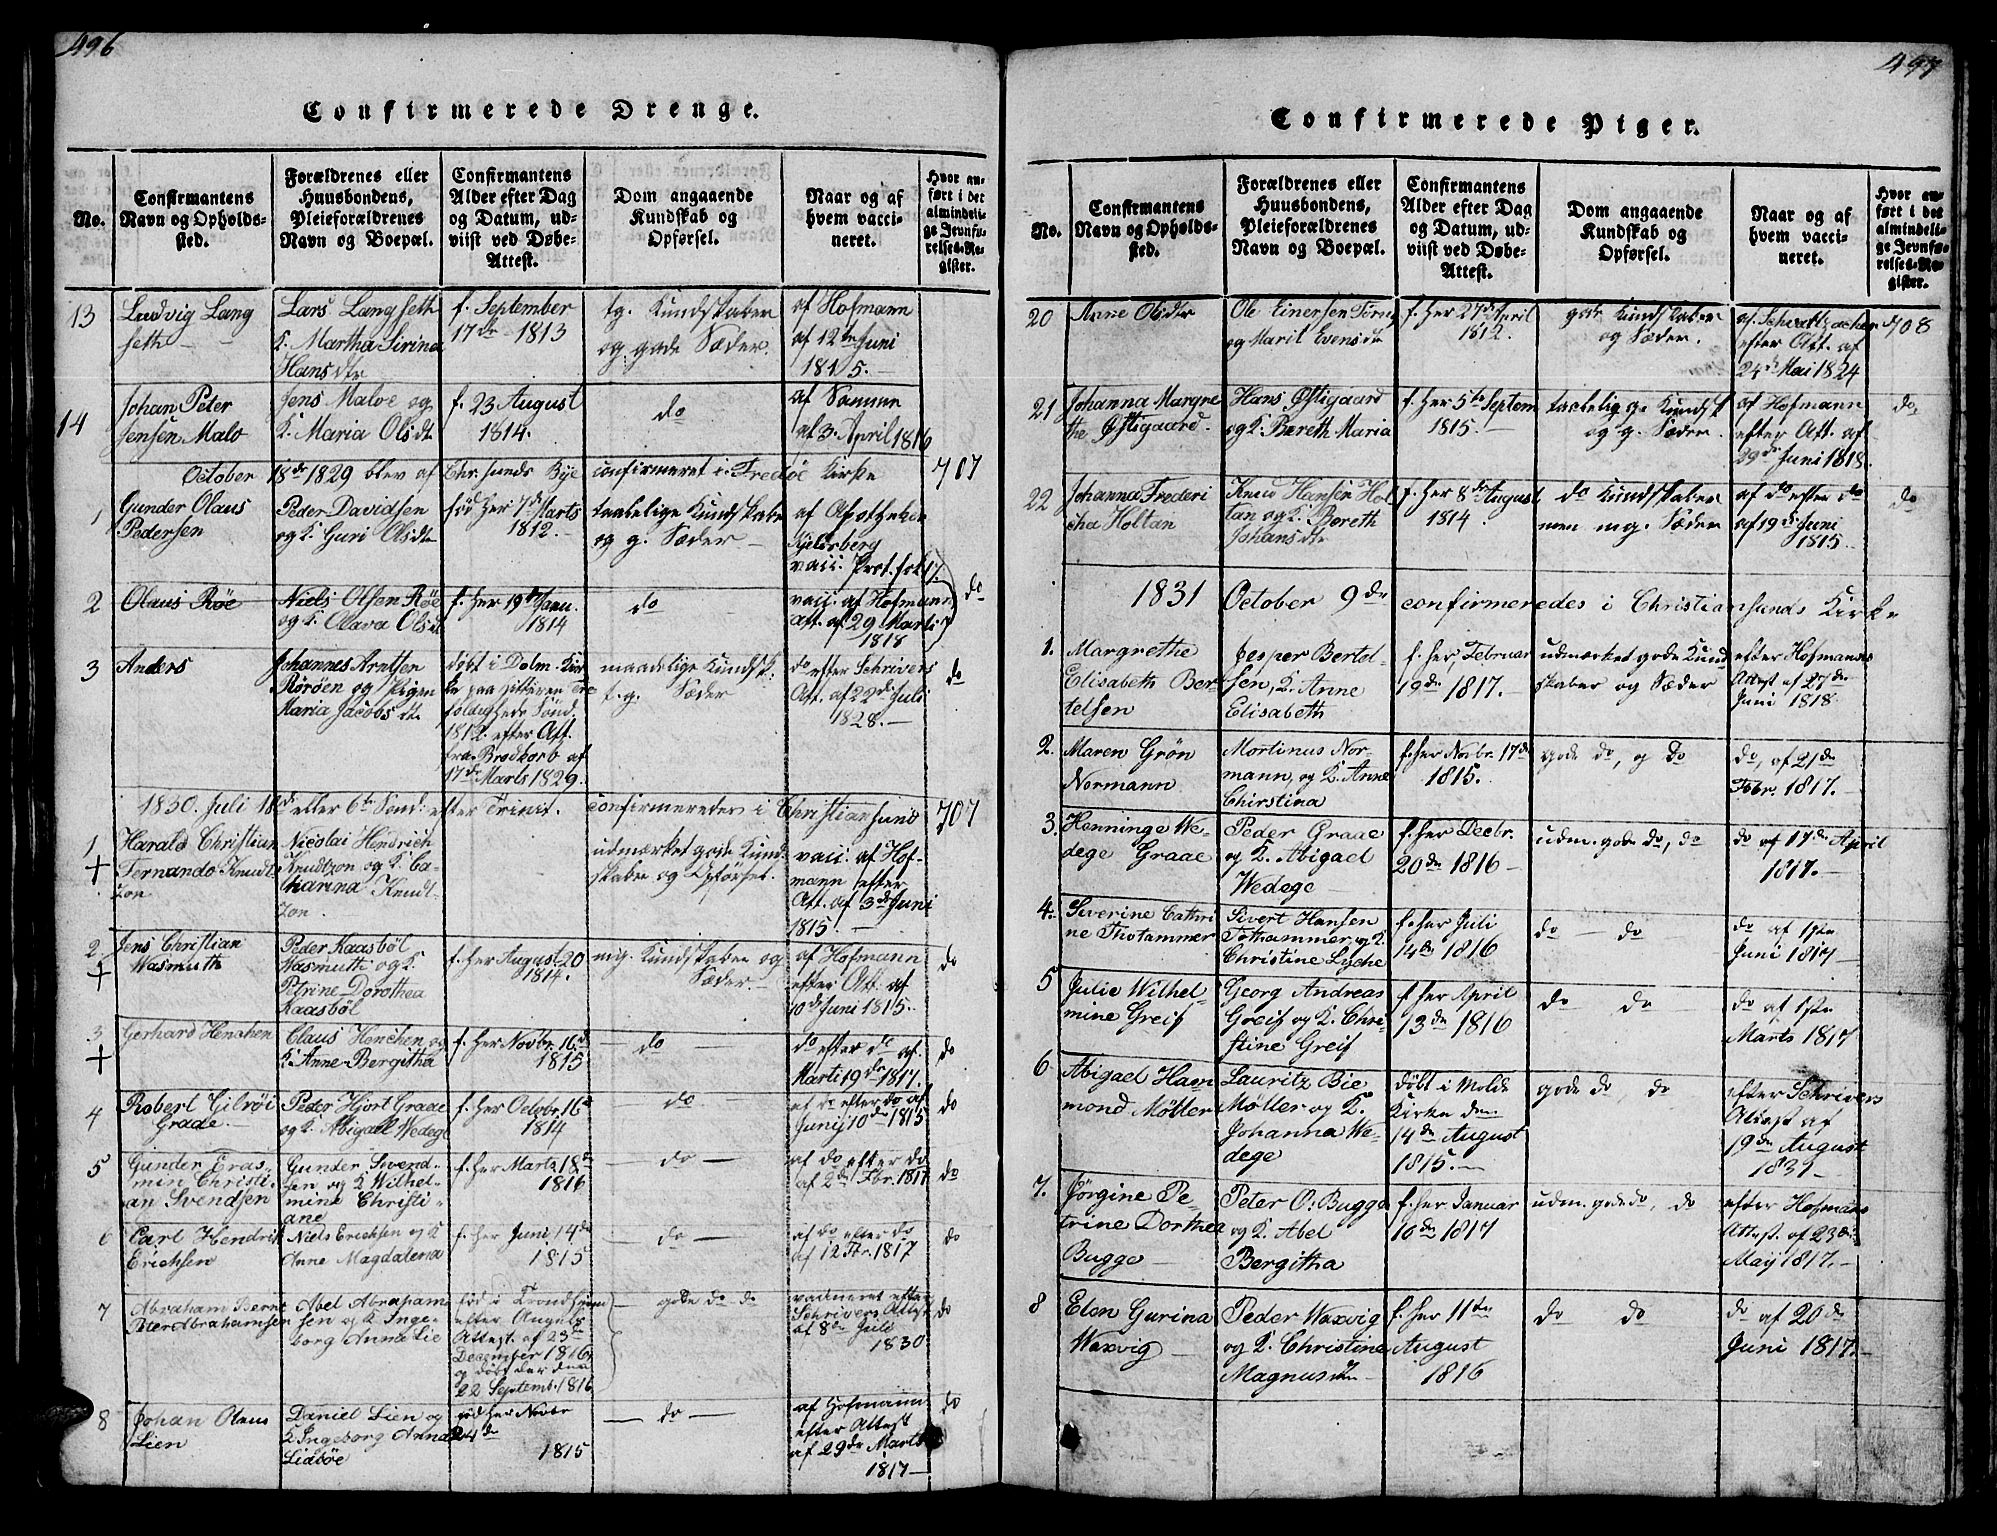 496
Confirmerede Drenge.
No.
Confirmantens
Navn og Opholds-
sted.
Forældrenes eller
Huusbondens,
Pleieforældrenes
Navn og Boepæl.
Confirmantens
Alder efter Dag
og Datum, ud-
viist ved Døbe-
Attest.
Dom angaaende
Kundskab og
Opførsel.
Naar og af
hvem vacci-
neret.
Hvor an-
ført i det
almindeli-
ge Jevnfø-
relses-Re-
gister.
13
Ludvig Lang
seth
Lars Langseth
K. Martha Sirina
Hansdtr
f. September
17de 1813
tg. Kundskaber
og gode Sæder.
af Hofmann
af 12te Juni
1815.
14
Johan Peter
Jensen Malo
Jens Maloe og
K. Maria Olsdtr
f. 23 August
1814.
do
af Samme
af 3. April 1816
October 18de 1829 blev af Chr.sunds Bye confirmeret i Fredøe Kirke
707
1
Gunder Olaus
Pedersen
Peder Davidsen
og K. Guri Olsdtr
fød her 7de Marts
1812.
taalelige Kundskaber
og g. Sæder
af Apotheker
Kjelsberg
vacc. Prot. fol. 17.
2
Olaus Røe
Niels Olsen Røe
og K. Olava Olsdtr
f. her 19de Janu.
1814
do
vacc. af Hofmann
Att. af 29 Marti
1818
do
3
Anders
Johannes Arntsen
Rørøen og Pigen
Maria Jacobsdtr
døbt i Dolm. Kir
ke paa
foldigheds Sønd.
1812 efter Att.
fra Brodkorb af
17de Marts 1829.
maadelige Kundsk:
t. g. Sæder
do efter Schrivers
Att. af 22de Juli
1828.
do
1830. Juli 18de eller 6te Sønd: efter Trinit. confirmeredes i Christiansund
707
1
+
Harald Christian
Fernando Knudt
zon
Nicolai Hendrich
Knudtzon og K. Ca-
tharina Knudt-
zon.
udmærket gode Kund
skaber og Opførsel.
vacc. af Hof-
mann efter
Att. af 3de Juni
1815.
2
+
Jens Christian
Wasmuth
Peder Kaasbøl
Wasmuth og K.
Petrine Dorothea
Kaasbøl
f. her August 20
1814.
mg. Kundskaber og
Sæder.
af Hofmann
efter Att. af
10de Juni 1815.
do
3
+
Gerhard Henchen
Claus Henchen og
K. Anne Bergitha
f. her Novbr. 16de
1815
do
do efter do af
Marti 19de 1817.
do
4
Robert Gilrøi
Grade.
Peder Hjort Graae
og K. Abigael Wedege
f. her Octobr. 16de
1814
do
af do efter do af
Junij 10de 1815
do
5
Gunder Eras-
min Christi-
an Svendsen
Gunder Svend-
sen og K. Wilhel-
mine Christi-
ane
f. her Marts 18de
1816
do
af do efter do
af 2de Fbr. 1817
do
6
Carl Hendrik
Erichsen
Niels Erichsen og K
Anne Magdalena
f. her Juni 14de
1815
do
af do efter do
af 12 Fbr. 1817
do
7
Abraham Bernt
Peter Abrahamsen
Abel Abraham
sen og K. Inge-
borg Anna Lie
fød i Trondhjem
efter Angels
Attest af 23de
December 1816,
og døbt der den
22 Septemb. 1816
gode do do
vaccineret efter
Schrivers Attest
af 8de Juli
1830
do
8
Johan Olaus
Lien
Daniel Lien og
K Ingeborg Anna
Lidbøe
fød her Novbr
24de
1815
do
af Hofmann
efter Attest
af 29de Marts
1817
do
497
Confirmerede Piger.
No.
Confirmantens
Navn og Opholds-
sted.
Forældrenes eller
Huusbondens,
Pleieforældrenes
Navn og Boepæl.
Confirmantens
Alder efter Dag
og Datum, ud-
viist ved Døbe-
Attest.
Dom angaaende
Kundskab og
Opførsel.
Naar og af
hvem vacci-
neret.
Hvor an-
ført i det
almindeli-
ge Jevnfø-
relses-Re-
gister.
20
Anne Olsdtr
Ole Einersen
og Marit Evensdtr
f. her 27de April
1812.
gode Kundskaber
og Sæder.
af
efter Att. af
24de Mai 1824
708
21
Johanna Margre
the Østigaard
Hans Østigaard
og K. Bereth Maria
f. her 5te Septem
1815.
taalelig g. Kundsk
og g. Sæder.
af Hofmann
efter Att. af
29de Juni 1818.
do
22
Johanna Frederi
cha Holtan
Knud Hansen Hol
tan og K. Bereth
Johansdtr
f. her 8de August
1814.
do Kundskaber
men mg. Sæder
af do efter do
af 19de Juni
1815
do
1831 October 9de confirmeredes i Christiansunds Kirke
1.
Margrethe
Elisabeth Ber-
telsen
Jesper Bertel-
sen, K. Anne
Elisabeth
f. her, Februar
19de 1817.
udmærket gode Kund
skaber og Sæder
efter Hofmanns
Attest af 27de
Juni 1818.
2.
Maren Grøn
Normann
Mortinus Nor-
mann, og K. Anne
Chirstina
f. her Novbr. 17de
1815.
gode do, og do
do, af 21de
Febr. 1817.
3.
Henninge We-
dege Graae
Peder Graae
og K. Abigael
Wedege
f. her Decbr.
20de 1816
udm. gode do, do
do af 17de April
1817.
4.
Siverine Cathri
ne Thotammer
Sivert Hansen
Tothammer, og K.
Christine Lyche
f. her Juli
14de 1816
do do
do af 1ste
Juni 1817
5
Julie Wilhel-
mine Greif
Georg Andreas
Greif og K. Chri-
stine Greif
f. her April
13de 1816
do do
do af 1ste
Marts 1817
6
Abigael Ham
mond Møller
Lauritz Bie
Møller og K.
Johanna We-
dege
døbt i Molde
Kirke den
14de August
1815.
gode do, do
efter Schrivers
Attest af
19de August
1831
7.
Jørgine Pe-
trine Dorthea
Bugge
Peter O: Bugge
og K. Abel
Bergitha
f. her Januar
10de 1817
udm. gode do, do
efter Hofmans
Attest. af 23de
Maij 1817.
8
Elen Gurina
Waxvig
Peder Waxvig
og K. Christine
Magnusdtr
f. her 11te
August
1816
do do
do af 20de
Juni 1817.